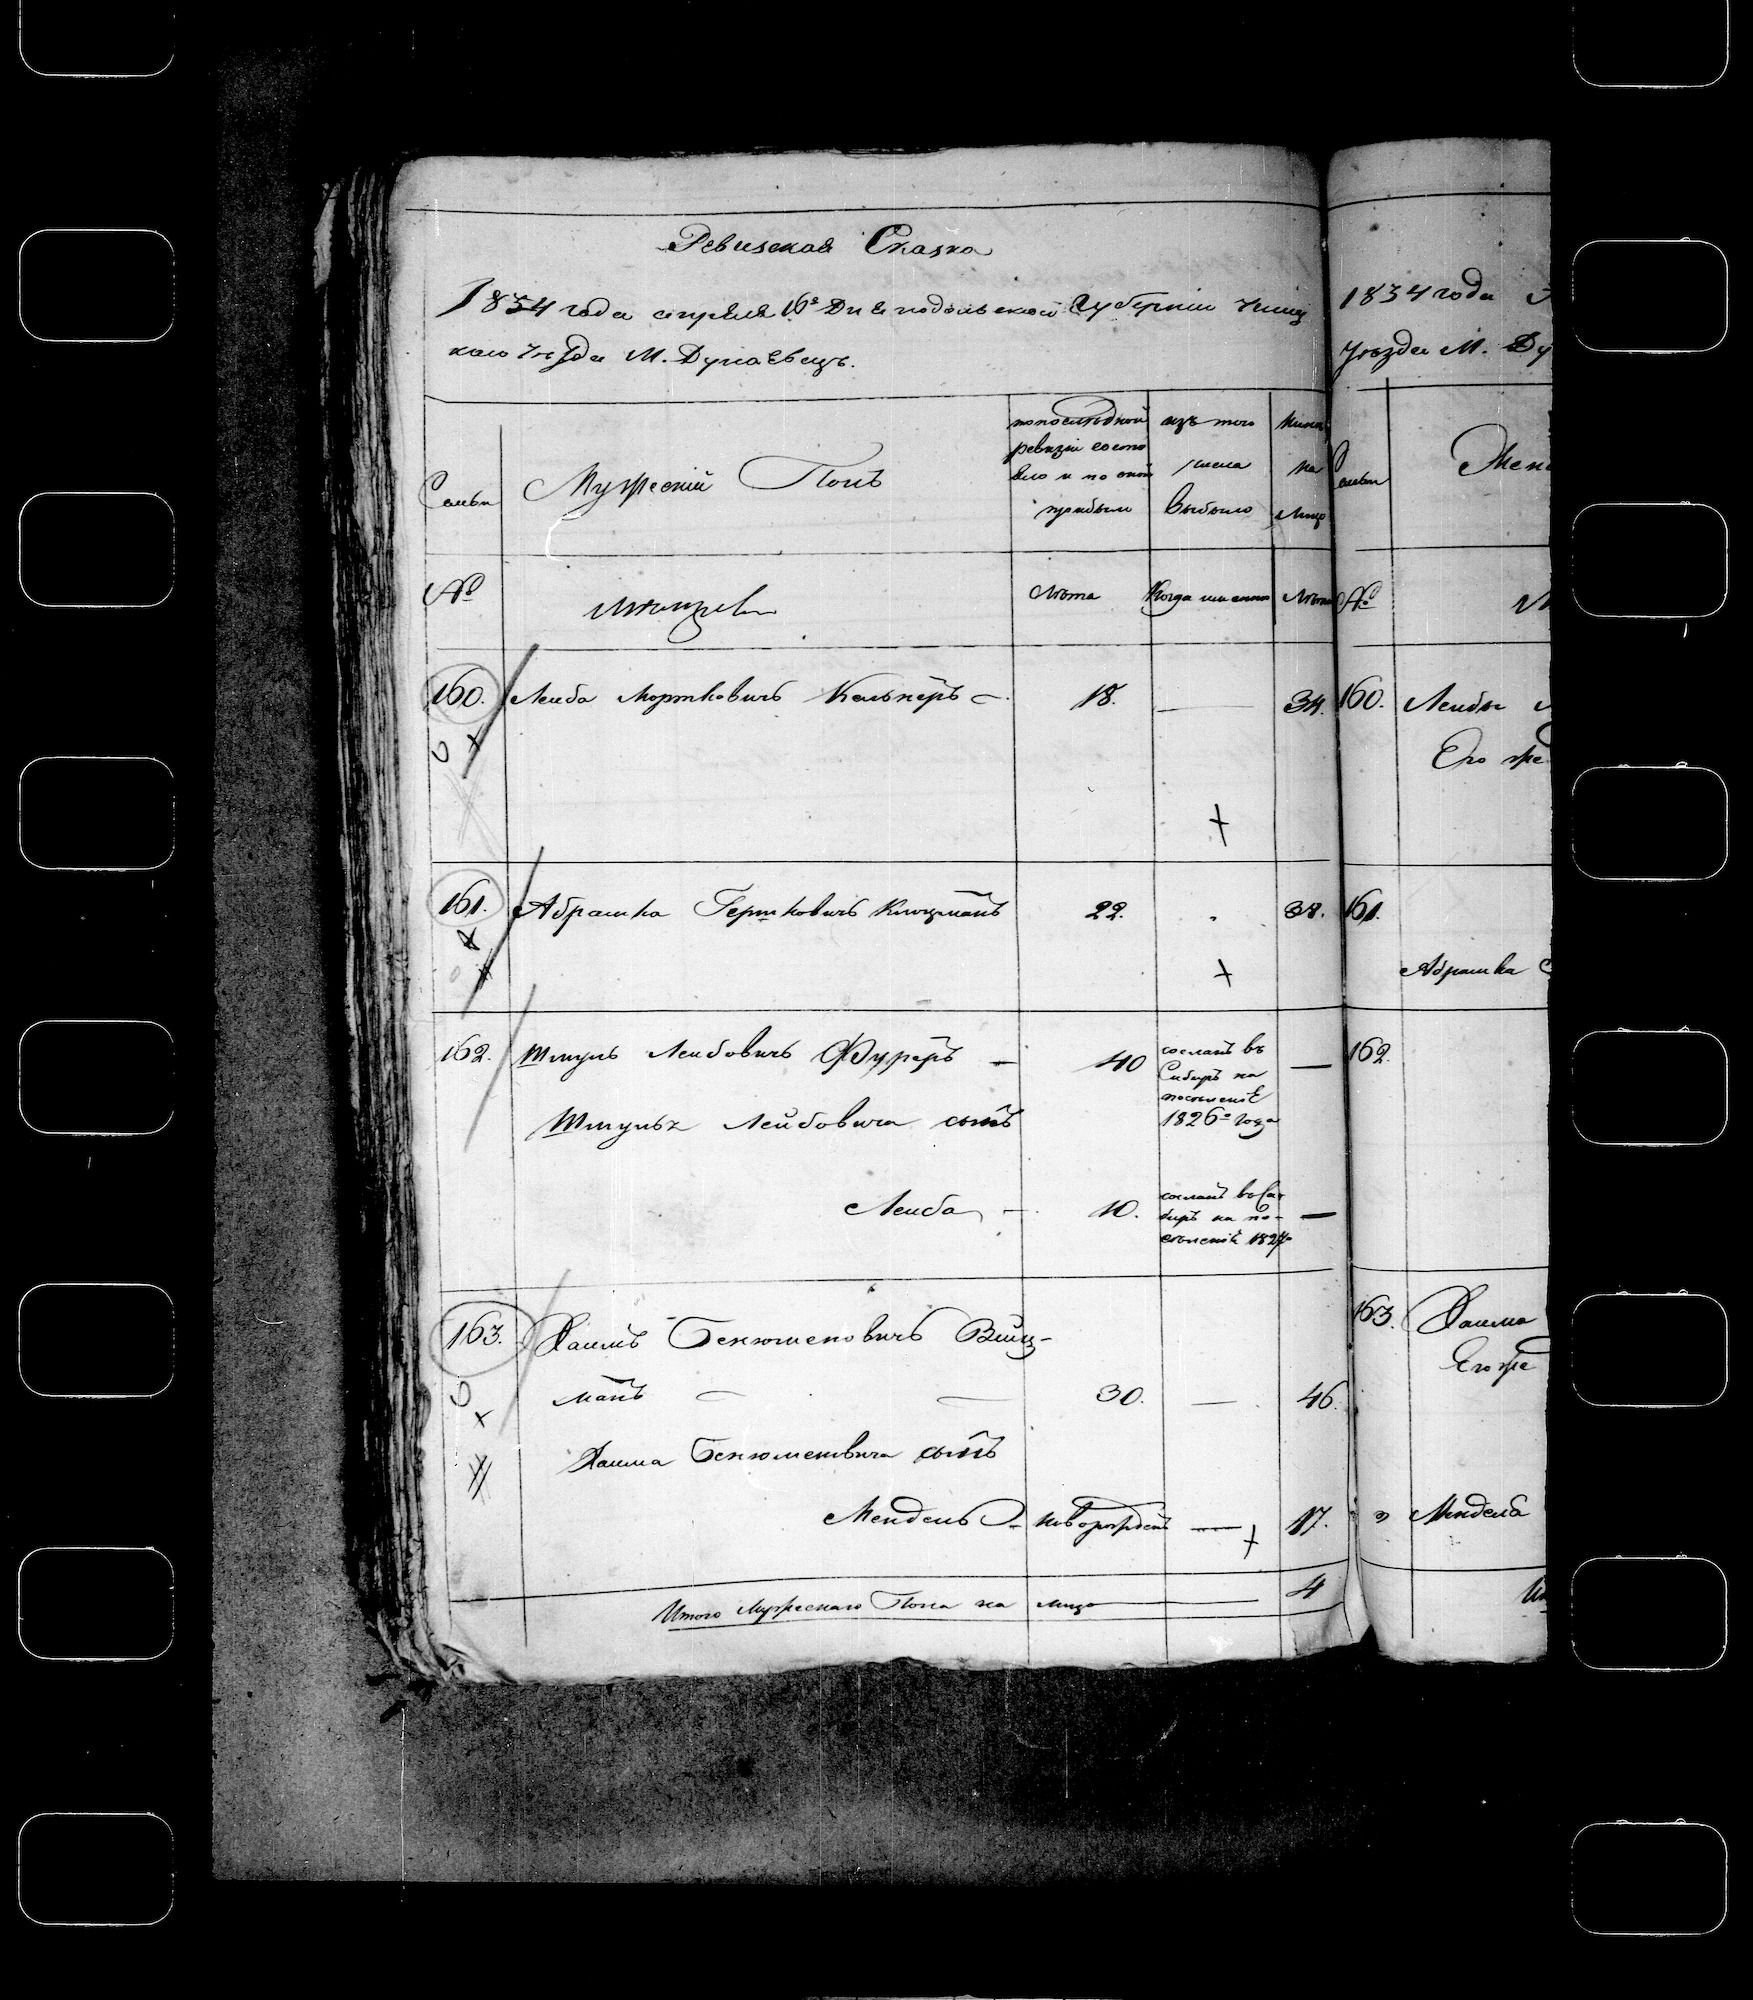 Ревизская Сказка
1834 года апреля 16го Дня подольской Губернiи Ушиц
каго Уѣзда М. Дунаевецъ.
Семьи
Мужескiй Полъ
по последной
ревизiи состо
яло и по оной
прибыли
изъ того
числа
выбыло
ныне
на
лицо
№
Лѣта
Когда именно
Лѣта
160. Лейба Мортковичъ Кельнеръ — 18. — 34.
161. Абрашка Гершковичъ Клоцманъ 22. 38.
162. Шмуль Лейбовичъ Фуреръ — 40 —
сосланъ въ
Сибирь на
поселенiе
1826го года
Шмуля Лейбовича сынъ
Лейба — 10. —
сосланъ въ Си
бирь на по-
селенiе 1827
163. Хаимъ Бенюменовичъ Вайц-
манъ — — 30. — 46.
Хаима Бенюменовича сынъ
Мендель — новорожденъ — 17.
Итого Мужескаго Пола на лицо 4
1834 года
Уѣзда М. Ду
Семьи
Жен
№
160. Лейбы
Его же
161.
Абрашка
162.
163. Хаима
Его же
Мендель